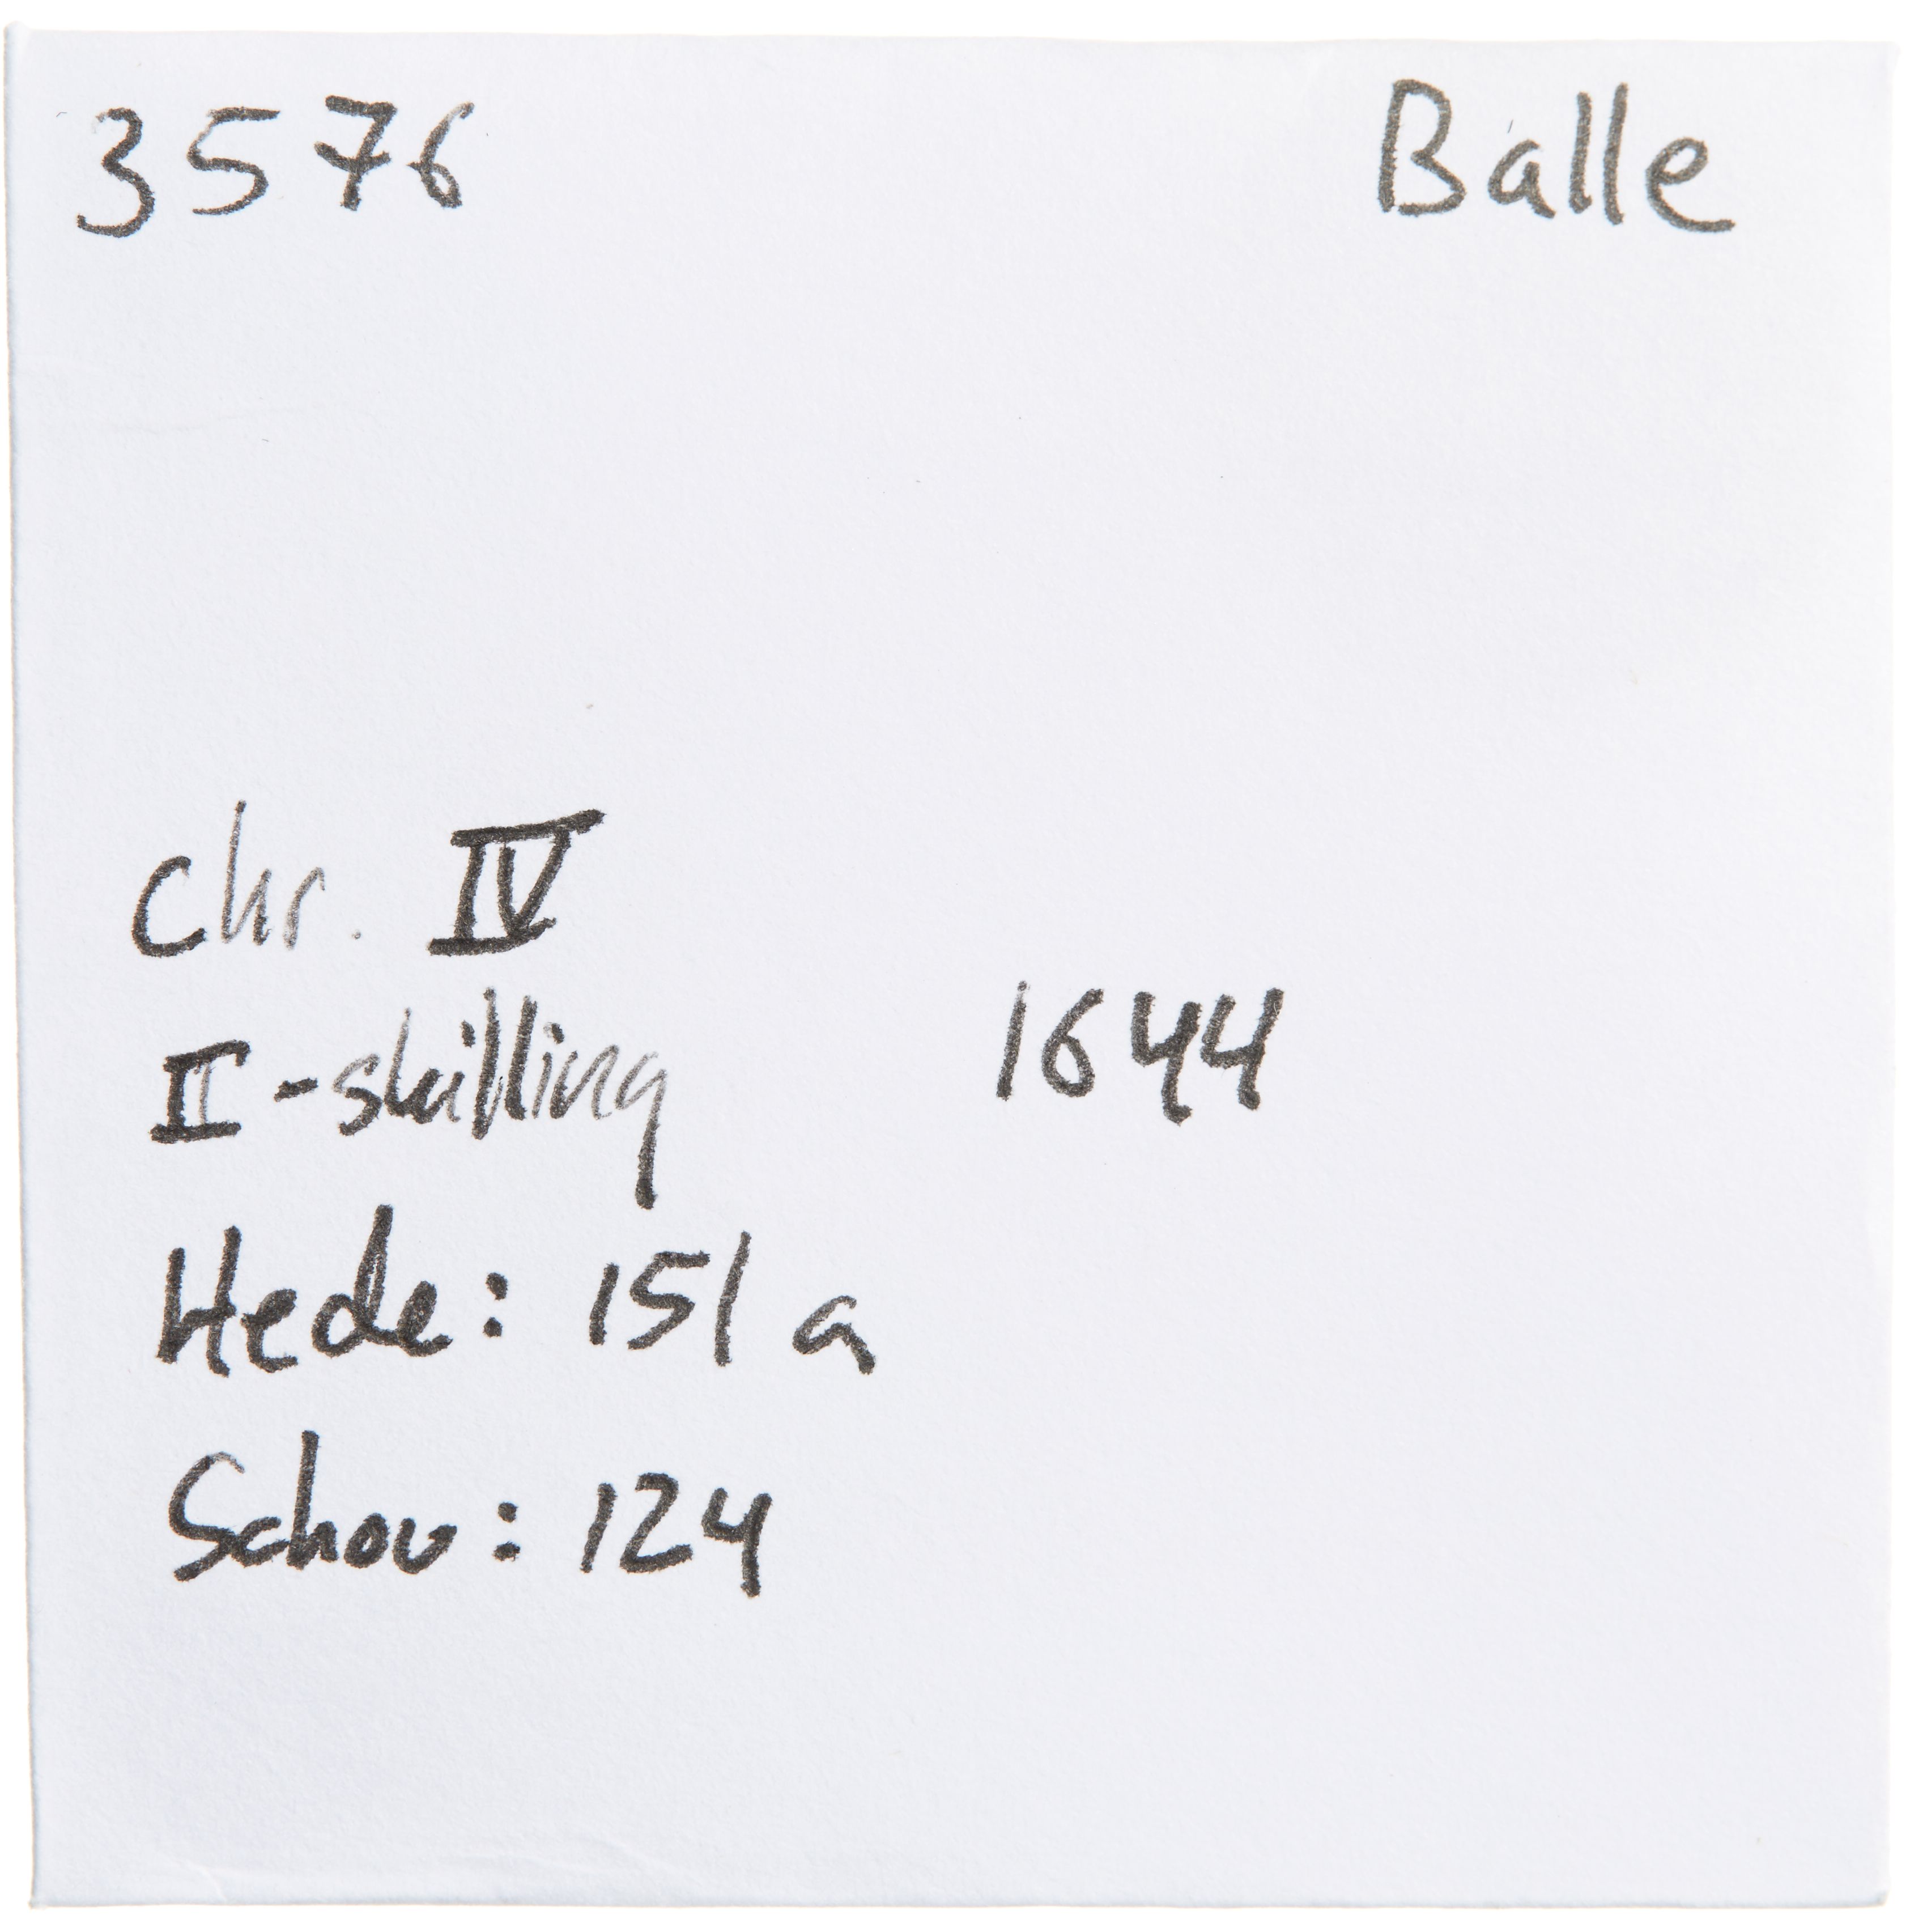 3576 Balle
Chr. IV
II-skilling 1644
Hede: 151 a
Schou: 124